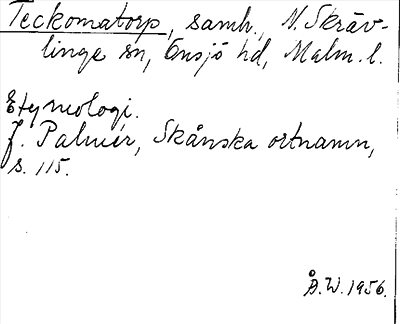 Teckomatorp, samh., N. Skräv-
linge sn, Onsjö hd, Malm. l.
Etymologi.
J. Palmér, Skånska ortnamn,
s. 115.
Å.W. 1956.